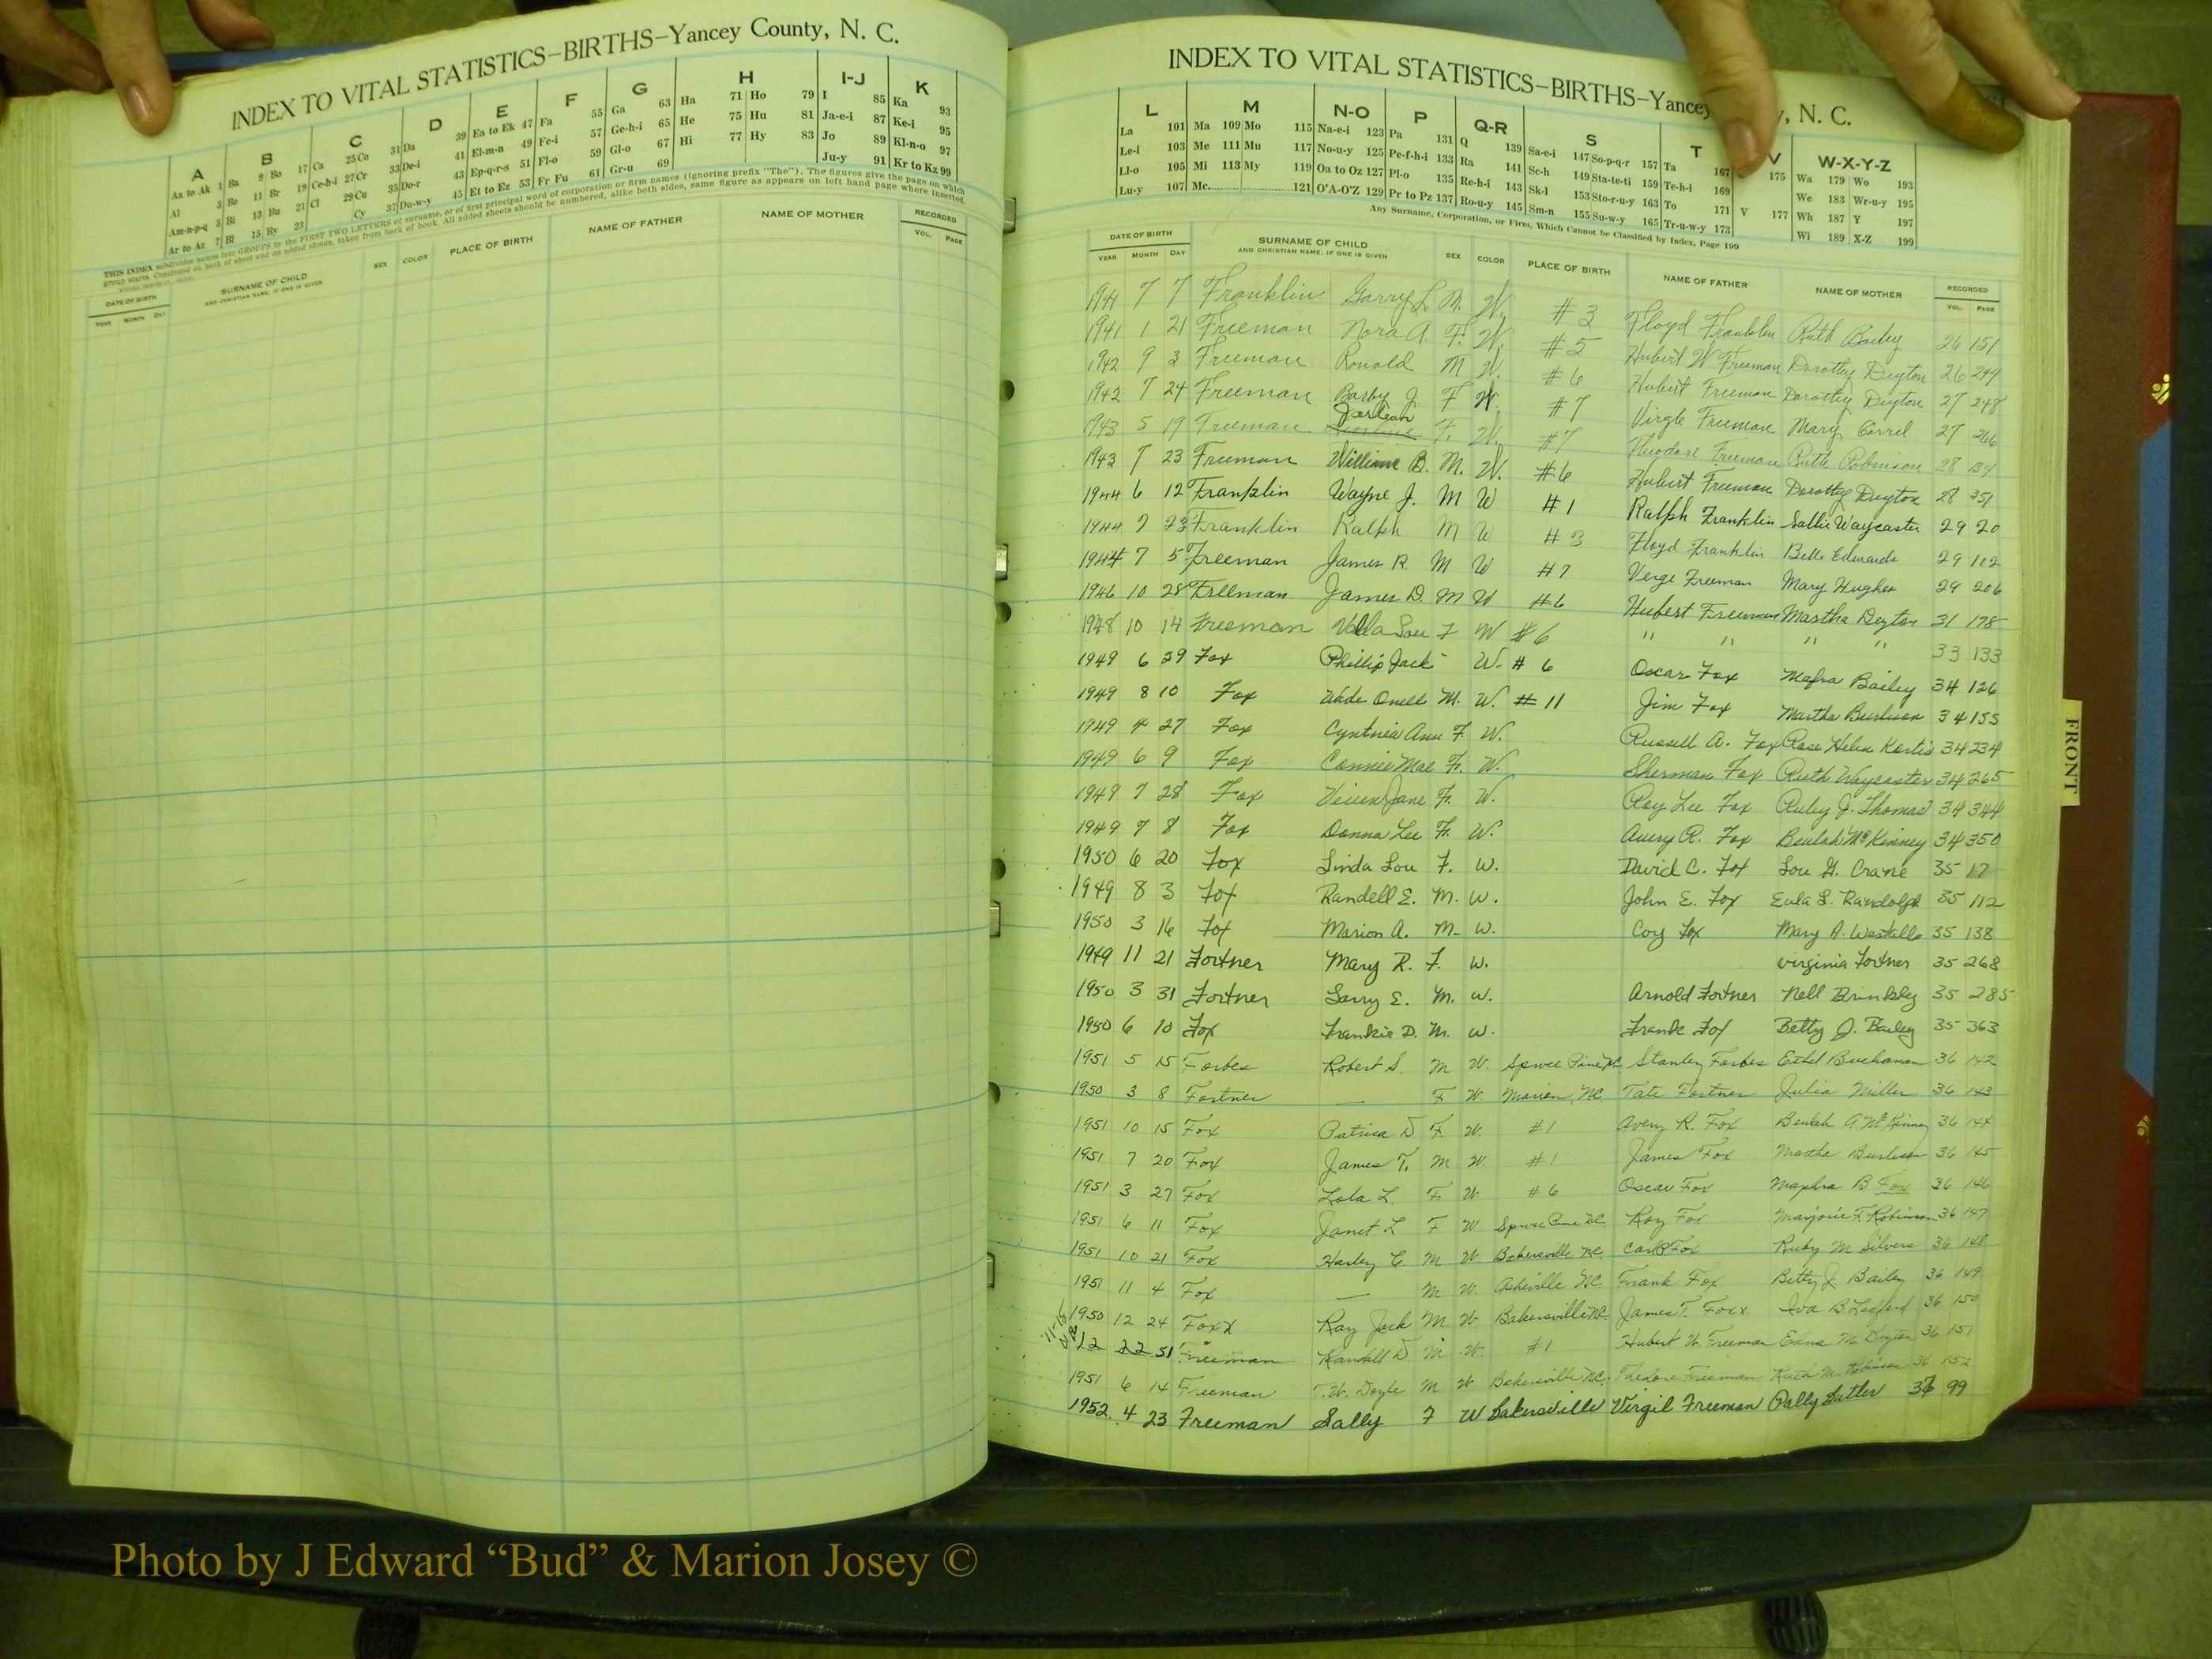 INDEX TO VITAL STATISTICS–BIRTHS–Yancey County, N. C.
A B C D E F G H I-J K
Aa to Ak 1 Ba 9 Bo 17 Ca 25 Co 31 Da 39 Ea to Ek 47 Fa 55 Ga 63 Ha 71 Ho 79 I 85 Ka 93
Al 3 Be 11 Br 19 Ce-h-i 27 Cr 33 De-i 41 El-m-n 49 Fe-i 57 Ge-h-i 65 He 75 Hu 81 Ja-e-i 87 Ke-i 95
Am-n-p-q 5 Bi 13 Bu 21 Cl 29 Cu 35 Do-r 43 Ep-q-r-s 51 Fl-o 59 Gl-o 67 Hi 77 Hy 83 Jo 89 Kl-n-o 97
Ar to Az 7 Bl 15 By 23 Cy 37 Du-w-y 45 Et to Ez 53 Fr Fu 61 Gr-u 69 Ju-y 91 Kr to Kz 99
THIS INDEX subdivides names into GROUPS by the FIRST TWO LETTERS of surname, or of first principal word of corporation or firm names (ignoring prefix "The"). The figures give the page on which
group starts. Continued on back of sheet and on added sheets, taken from back of book. All added sheets should be numbered, alike both sides, same figure as appears on left hand page where inserted.
DATE OF BIRTH SURNAME OF CHILD SEX COLOR PLACE OF BIRTH NAME OF FATHER NAME OF MOTHER RECORDED
YEAR MONTH DAY AND CHRISTIAN NAME, IF ONE IS GIVEN VOL. PAGE
INDEX TO VITAL STATISTICS–BIRTHS–Yancey , N. C.
L M N-O P Q-R S T V W-X-Y-Z
La 101 Ma 109 Mo 115 Na-e-i 123 Pa 131 Q 139 Sa-e-i 147 So-p-q-r 157 Ta 167 175 Wa 179 Wo 193
Le-i 103 Me 111 Mu 117 No-u-y 125 Pe-f-h-i 133 Ra 141 Sc-h 149 Sta-te-ti 159 Te-h-i 169 We 183 Wr-u-y 195
Ll-o 105 Mi 113 My 119 Oa to Oz 127 Pl-o 135 Re-h-i 143 Sk-l 153 Sto-r-u-y 163 To 171 V 177 Wh 187 Y 197
Lu-y 107 Mc 121 O'A-O'Z 129 Pr to Pz 137 Ro-u-y 145 Sm-n 155 Su-w-y 165 Tr-u-w-y 173 Wi 189 X-Z 199
Any Surname, Corporation, or Firm, Which Cannot be Classified by Index, Page 199
DATE OF BIRTH SURNAME OF CHILD SEX COLOR PLACE OF BIRTH NAME OF FATHER NAME OF MOTHER RECORDED
YEAR MONTH DAY AND CHRISTIAN NAME, IF ONE IS GIVEN VOL. PAGE
1941 7 7 Franklin Garry L. M. W. #3 Floyd Franklin Ruth Bailey 26 151
1941 1 21 Freeman Nora A. F. W. #5 Hubert W. Freeman Dorothy Deyton 26 294
1942 9 3 Freeman Ronald M W. #6 Hubert Freeman Dorothy Deyton 27 248
1942 7 24 Freeman Barby J. F W. #7 Virgle Freeman Mary Correl 27 266
1943 5 19 Freeman Jerlean F. W. #7 Theodore Freeman Ruth Robinson 28 134
1943 7 23 Freeman William B. M. W. #6 Hubert Freeman Dorothy Deyton 28 351
1944 6 12 Franklin Wayne J. M W #1 Ralph Franklin Sallie Waycaster 29 20
1944 7 23 Franklin Ralph M W #3 Floyd Franklin Belle Edwards 29 102
1944 7 5 Freeman James R. M W #7 Verge Freeman Mary Hughes 29 206
1946 10 28 Freeman James D. M W #6 Hubert Freeman Martha Deyton 31 178
1948 10 14 Freeman Valla Sou F W #6 " " " " 33 133
1949 6 29 Fox Phillip Jack W. #6 Oscar Fox Mafra Bailey 34 126
1949 8 10 Fox Wade Onell M. W. #11 Jim Fox Martha Burleson 34 155
1949 4 27 Fox Cynthia Ann F. W. Russell A. Fox Rose Helen Kortis 34 234
1949 6 9 Fox Connie Mae F. W. Sherman Fox Ruth Waycaster 34 265
1949 7 28 Fox Jane F. W. Roy Lee Fox Ruby J. Thomas 34 344
1949 7 8 Fox Donna Lee F. W. Avery R. Fox Beulah McKinney 34 350
1950 6 20 Fox Linda Lou F. W. David C. Fox Lou H. Crane 35 17
1949 8 3 Fox Randell E. M. W. John E. Fox Eula L. Randolph 35 112
1950 3 16 Fox Marion A. M- W. Coy Fox Mary A. Westall 35 138
1949 11 21 Fortner Mary R. F. W. Virginia Fortner 35 268
1950 3 31 Fortner Larry E. M. W. Arnold Fortner Nell Brinkley 35 285
1950 6 10 Fox Frankie D. M. W. Frank Fox Betty J. Bailey 35 363
1951 5 15 Forbes Robert S. M W. Spruce Pine NC Stanley Forbes Ethel Buchanan 36 142
1950 3 8 Fortner — F W. Marion, NC Tate Fortner Julia Miller 36 143
1951 10 15 Fox Patrica D F. W. #1 Avery R. Fox Beulah A. McKinney 36 144
1951 7 20 Fox James T. M W. #1 James Fox Martha Burleson 36 145
1951 3 27 Fox Lola L. F. W. #6 Oscar Fox Maphra B Fox 36 146
1951 6 11 Fox Janet L F W Spruce Pine NC. Roy Fox Marjorie F. Robinson 36 147
1951 10 21 Fox Harley C M W. Bakersville NC. Carl R Fox Ruby M Silvers 36 148
1951 11 4 Fox — M W. Asheville NC. Frank Fox Betty J. Bailey 36 149
1950 12 24 Foxx Ray Jack M W. Bakersville NC. James T. Foxx Iva B. Ledford 36 150
12 22 51 Freeman Randall D M W. #1 Hubert W. Freeman Edna M. Deyton 36 151
1951 6 14 Freeman T.W. Doyle M W Bakersville NC. Theodore Freeman Ruth M. Robinson 36 152
1952 4 23 Freeman Sally F W Bakersville Virgil Freeman Polly Butler 36 99
FRONT
Photo by J Edward “Bud” & Marion Josey ©